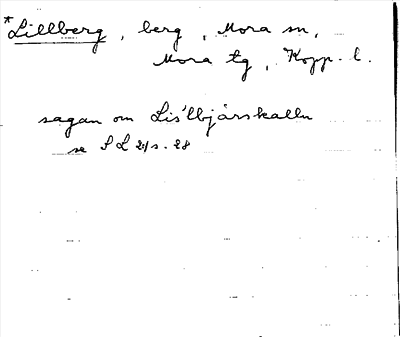 *Lillberg, berg, Mora sn,
Mora tg, Kopp. l.
sagan om Lis'lbjårskalln
se S L 2/s. 28